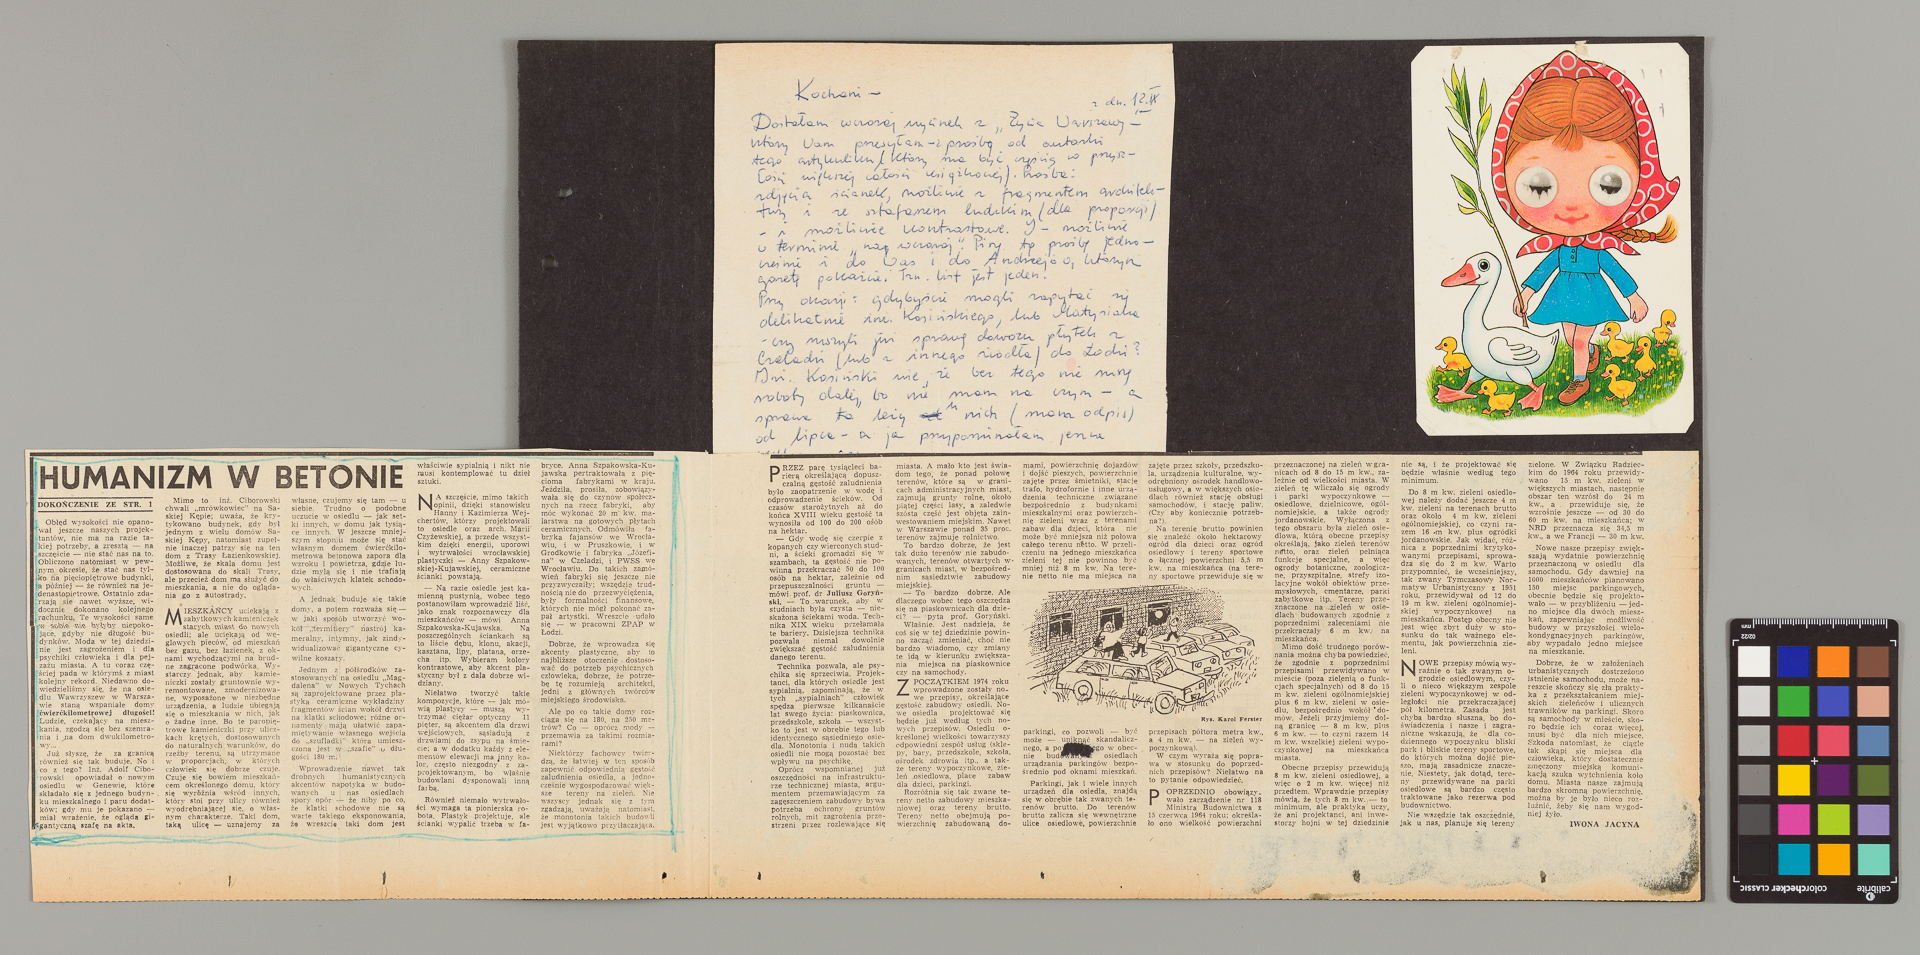 Kochani —
z dn. 12.IX
Dostałam wczoraj wycinek z „Życia Warszawy" —
który Wam przesyłam z prośbą od autorki
tego artykulików (który ma być częścią w przysz-
łości większej całości książkowej). Prośba:
zdjęcia ścianek, możliwie z fragmentem architek-
tury i ze sztafażem ludzkim (dla proporcji)
— i możliwie kontrastowe. I — możliwie
w terminie „na wczoraj". Piszę tę prośbę jedno-
cześnie i do Was i do Andrzejów, którym
gazetę pokażcie. Tzn. list jest jeden.
Przy okazji: gdybyście mogli zapytać się
delikatnie inż. Kosińskiego, lub Matysiaka
— czy ruszyli już sprawę dowozu płytek z
Czeladzi (lub z innego źródła) do Łodzi?
Inż. Kosiński wie, że bez tego nie ruszę
roboty dalej, bo nie mam na czym — a
sprawa ta leży u nich (mam odpis)
od lipca — a ja przypominałam jeszcze
HUMANIZM W BETONIE
DOKOŃCZENIE ZE STR. 1
Obłęd wysokości nie opano-
wał jeszcze naszych projek-
tantów, nie ma na razie ta-
kiej potrzeby, a zresztą — na
szczęście — nie stać nas na to.
Obliczono natomiast w pew-
nym okresie, że stać nas tyl-
ko na pięciopiętrowe budynki,
a później — że również na je-
denastopiętrowe. Ostatnio zda-
rzają się nawet wyższe, wi-
docznie dokonano kolejnego
rachunku. Te wysokości same
w sobie nie byłyby niepoko-
jące, gdyby nie długość bu-
dynków. Moda w tej dziedzi-
nie jest zagrożeniem i dla
psychiki człowieka i dla pej-
zażu miasta. A tu coraz czę-
ściej pada w którymś z miast
kolejny rekord. Niedawno do-
wiedzieliśmy się, że na osie-
dlu Wawrzyszew w Warsza-
wie staną wspaniałe domy
ćwierćkilometrowej długości!
Ludzie, czekający na miesz-
kania, zgodzą się bez szemra-
nia i na dom dwukilometro-
wy...
Już słyszę, że za granicą
również się tak buduje. No i
co z tego? Inż. Adolf Cibo-
rowski opowiadał o nowym
osiedlu w Genewie, które
składało się z jednego budyn-
ku mieszkalnego i paru dodat-
ków; gdy mu je pokazano —
miał wrażenie, że ogląda gi-
gantyczną szafę na akta.
Mimo to inż. Ciborowski
chwali „mrówkowiec" na Sa-
skiej Kępie; uważa, że kry-
tykowano budynek, gdy był
jednym z wielu domów Sa-
skiej Kępy, natomiast zupeł-
nie inaczej patrzy się na ten
dom z Trasy Łazienkowskiej.
Możliwe, że skala domu jest
dostosowana do skali Trasy,
ale przecież dom ma służyć do
mieszkania, a nie do ogląda-
nia go z autostrady.
MIESZKAŃCY uciekają z
zabytkowych kamieniczek
starych miast do nowych
osiedli; ale uciekają od wę-
glowych pieców, od mieszkań
bez gazu, bez łazienek, z ok-
nami wychodzącymi na brud-
ne zagracone podwórka. Wy-
starczy jednak, aby kamie-
niczki zostały gruntownie wy-
remontowane, zmodernizowa-
ne, wyposażone w niezbędne
urządzenia, a ludzie ubiegają
się o mieszkania w nich, jak
o żadne inne. Bo te paropię-
trowe kamieniczki przy ulicz-
kach krętych, dostosowanych
do naturalnych warunków, do
rzeźby terenu, są utrzymane
w proporcjach, w których
człowiek się dobrze czuje.
Czuje się bowiem mieszkań-
cem określonego domu, który
się wyróżnia wśród innych,
który stoi przy ulicy również
wyodrębniającej się, o włas-
nym charakterze. Taki dom,
taką ulicę — uznajemy za
własne, czujemy się tam — u
siebie. Trudno o podobne
uczucie w osiedlu — jak set-
ki innych, w domu jak tysią-
ce innych. W jeszcze mniej-
szym stopniu może się stać
własnym domem ćwierćkilo-
metrowa betonowa zapora dla
wzroku i powietrza, gdzie lu-
dzie mylą się i nie trafiają
do właściwych klatek schodo-
wych.
A jednak buduje się takie
domy, a potem rozważa się —
w jaki sposób utworzyć wo-
kół „termitiery" nastrój ka-
meralny, intymny, jak zindy-
widualizować gigantyczne cy-
wilne koszary.
Jednym z półśrodków za-
stosowanych na osiedlu „Mag-
dalena" w Nowych Tychach
są zaprojektowane przez pla-
styka ceramiczne wykładziny
fragmentów ścian wokół drzwi
na klatki schodowe; różne or-
namenty mają ułatwić zapa-
miętywanie własnego wejścia
do „szufladki" która umiesz-
czona jest w „szafie" o dłu-
gości 180 m.
Wprowadzenie nawet tak
drobnych humanistycznych
akcentów napotyka w budo-
wanych u nas osiedlach
spory opór — że niby po co,
że klatki schodowe nie są
warte takiego eksponowania,
że wreszcie taki dom jest
właściwie sypialnią i nikt nie
musi kontemplować tu dzieł
sztuki.
NA szczęście, mimo takich
opinii, dzięki stanowisku
Hanny i Kazimierza Wej-
chertów, którzy projektowali
to osiedle oraz arch. Marii
Czyżewskiej, a przede wszyst-
kim dzięki energii, uporowi
i wytrwałości wrocławskiej
plastyczki — Anny Szpakow-
skiej-Kujawskiej, ceramiczne
ścianki powstają.
— Na razie osiedle jest ka-
mienną pustynią, wobec tego
postanowiłam wprowadzić liść,
jako znak rozpoznawczy dla
mieszkańców — mówi Anna
Szpakowska-Kujawska. Na
poszczególnych ściankach są
to liście dębu, klonu, akacji,
kasztana, lipy, platana, orze-
cha itp. Wybieram kolory
kontrastowe, aby akcent pla-
styczny był z dala dobrze wi-
dziany.
Niełatwo tworzyć takie
kompozycje, które — jak mó-
wią plastycy — muszą wy-
trzymać ciężar optyczny 11
pięter, są akcentem dla drzwi
wejściowych, sąsiadują z
drzwiami do zsypu na śmie-
cie; a w dodatku każdy z ele-
mentów elewacji ma inny ko-
lor, często niezgodny z za-
projektowanym, bo właśnie
budowlani dysponowali inną
farbą.
Również niemało wytrwało-
ści wymaga ta pionierska ro-
bota. Plastyk projektuje, ale
ścianki wypalić trzeba w fa-
bryce. Anna Szpakowska-Ku-
jawska pertraktowała z pię-
cioma fabrykami w kraju.
Jeździła, prosiła, zobowiązy-
wała się do czynów społecz-
nych na rzecz fabryki, aby
móc wykonać 20 m kw. ma-
larstwa na gotowych płytach
ceramicznych. Odmówiła fa-
bryka fajansów we Wrocła-
wiu, i w Pruszkowie, i w
Grodkowie i fabryka „Józefi-
na" w Czeladzi, i PWSS we
Wrocławiu! Do takich zamó-
wień fabryki się jeszcze nie
przyzwyczaiły; wszędzie trud-
nością nie do przezwyciężenia,
były formalności finansowe,
których nie mógł pokonać za-
pał artystki. Wreszcie udało
się — w pracowni ZPAP w
Łodzi.
Dobrze, że wprowadza się
akcenty plastyczne, aby to
najbliższe otoczenie dostoso-
wać do potrzeb psychicznych
człowieka, dobrze, że potrze-
bę tę rozumieją architekci,
jedni z głównych twórców
miejskiego środowiska.
Ale po co takie domy roz-
ciąga się na 180, na 250 me-
trów? Co — oprócz mody —
przemawia za takimi rozmia-
rami?
Niektórzy fachowcy twier-
dzą, że łatwiej w ten sposób
zapewnić odpowiednią gęstość
zaludnienia osiedla, a jedno-
cześnie wygospodarować więk-
sze tereny na zieleń. Nie
wszyscy jednak się z tym
zgadzają, uważają natomiast,
że monotonia takich budowli
jest wyjątkowo przytłaczająca.
PRZEZ parę tysiącleci ba-
rierą określającą dopusz-
czalną gęstość zaludnienia
było zaopatrzenie w wodę i
odprowadzenie ścieków. Od
czasów starożytnych aż do
końca XVIII wieku gęstość ta
wynosiła od 100 do 200 osób
na hektar.
— Gdy wodę się czerpie z
kopanych czy wierconych stud-
ni, a ścieki gromadzi się w
szambach, ta gęstość nie po-
winna przekraczać 50 do 100
osób na hektar, zależnie od
przepuszczalności gruntu —
mówi prof. dr Juliusz Goryń-
ski. — To warunek, aby w
studniach była czysta — nie-
skażona ściekami woda. Tech-
nika XIX wieku przełamała
te bariery. Dzisiejsza technika
pozwala niemal dowolnie
zwiększać gęstość zaludnienia
danego terenu.
Technika pozwala, ale psy-
chika się sprzeciwia. Projek-
tanci, dla których osiedle jest
sypialnią, zapominają, że w
tych „sypialniach" człowiek
spędza pierwsze kilkanaście
lat swego życia: piaskownica,
przedszkole, szkoła — wszyst-
ko to jest w obrębie tego lub
identycznego sąsiedniego osie-
dla. Monotonia i nuda takich
osiedli nie mogą pozostać bez
wpływu na psychikę.
Oprócz wspomnianej już
oszczędności na infrastruktu-
rze technicznej miasta, argu-
mentem przemawiającym za
zagęszczeniem zabudowy bywa
potrzeba ochrony gruntów
rolnych, mit zagrożenia prze-
strzeni przez rozlewające się
miasta. A mało kto jest świa-
dom tego, że ponad połowę
terenów, które są w grani-
cach administracyjnych miast,
zajmują grunty rolne, około
piątej części lasy, a zaledwie
szósta część jest objęta zain-
westowaniem miejskim. Nawet
w Warszawie ponad 35 proc.
terenów zajmuje rolnictwo.
To bardzo dobrze, że jest
tak dużo terenów nie zabudo-
wanych, terenów otwartych w
granicach miast, w bezpośred-
nim sąsiedztwie zabudowy
miejskiej.
— To bardzo dobrze. Ale
dlaczego wobec tego oszczędza
się na piaskownicach dla dzie-
ci? — pyta prof. Goryński.
Właśnie. Jest nadzieja, że
coś się w tej dziedzinie powin-
no zacząć zmieniać, choć nie
bardzo wiadomo, czy zmiany
te idą w kierunku zwiększa-
nia miejsca na piaskownice
czy na samochody.
Z POCZĄTKIEM 1974 roku
wprowadzone zostały no-
we przepisy, określające
gęstość zabudowy osiedli. No-
we osiedla projektować się
będzie już według tych no-
wych przepisów. Osiedlu o-
kreślonej wielkości towarzyszy
odpowiedni zespół usług (skle-
py, bary, przedszkole, szkoła,
ośrodek zdrowia itp., a tak-
że tereny wypoczynkowe, zie-
leń osiedlowa, place zabaw
dla dzieci, parkingi.
Rozróżnia się tak zwane te-
reny netto zabudowy mieszka-
niowej oraz tereny brutto.
Tereny netto obejmują po-
wierzchnię zabudowaną do-
mami, powierzchnię dojazdów
i dojść pieszych, powierzchnie
zajęte przez śmietniki, stację
trafo, hydrofornie i inne urzą-
dzenia techniczne związane
bezpośrednio z budynkami
mieszkalnymi oraz powierzch-
nię zieleni wraz z terenami
zabaw dla dzieci, która nie
może być mniejsza niż połowa
całego terenu netto. W przeli-
czeniu na jednego mieszkańca
zieleni tej nie powinno być
mniej niż 8 m kw. Na tere-
nie netto nie ma miejsca na
parkingi, co pozwoli — być
może — uniknąć skandalicz-
Parkingi, jak i wiele innych
urządzeń dla osiedla, znajdą
się w obrębie tak zwanych te-
renów brutto. Do terenów
brutto zalicza się wewnętrzne
ulice osiedlowe, powierzchnie
zajęte przez szkoły, przedszko-
la, urządzenia kulturalne, wy-
odrębniony ośrodek handlowo-
usługowy, a w większych osie-
dlach również stację obsługi
samochodów, i stację paliw.
(Czy aby koniecznie potrzeb-
na?).
Na terenie brutto powinien
się znaleźć około hektarowy
ogród dla dzieci oraz ogród
osiedlowy i tereny sportowe
o łącznej powierzchni 5,5 m
kw. na mieszkańca (na tere-
ny sportowe przewiduje się w
Rys. Karol Ferster
przepisach półtora metra kw.,
a 4 m kw. — na zieleń wy-
poczynkową).
W czym wyraża się popra-
wa w stosunku do poprzed-
nich przepisów? Niełatwo na
to pytanie odpowiedzieć.
POPRZEDNIO obowiązy-
wało zarządzenie nr 118
Ministra Budownictwa z
15 czerwca 1964 roku; określa-
ło ono wielkość powierzchni
przeznaczonej na zieleń w gra-
nicach od 8 do 15 m kw., za-
leżnie od wielkości miasta. W
zieleń tę wliczało się ogrody
i parki wypoczynkowe —
osiedlowe, dzielnicowe, ogól-
nomiejskie, a także ogrody
jordanowskie. Wyłączona z
tego obszaru była zieleń osie-
dlowa, którą obecne przepisy
określają, jako zieleń terenów
netto, oraz zieleń pełniąca
funkcje specjalne, a więc
ogrody botaniczne, zoologicz-
ne, przyszpitalne, strefy izo-
lacyjne wokół obiektów prze-
mysłowych, cmentarze, parki
zabytkowe itp. Tereny prze-
znaczone na zieleń w osie-
dlach budowanych zgodnie z
poprzednimi zaleceniami nie
przekraczały 6 m kw. na
mieszkańca.
Mimo dość trudnego porów-
nania można chyba powiedzieć,
że zgodnie z poprzednimi
przepisami przewidywano w
mieście (poza zielenią o funk-
cjach specjalnych) od 8 do 15
m kw. zieleni ogólnomiejskiej
plus 6 m kw. zieleni w osie-
dlu, bezpośrednio wokół do-
mów. Jeżeli przyjmiemy dol-
ną granicę — 8 m kw. plus
6 m kw. — to czyni razem 14
m kw. wszelkiej zieleni wypo-
czynkowej na mieszkańca
miasta.
Obecne przepisy przewidują
8 m kw. zieleni osiedlowej, a
więc o 2 m kw. więcej niż
przedtem. Wprawdzie przepisy
mówią, że tych 8 m kw. — to
minimum, ale praktyka uczy,
że ani projektanci, ani inwe-
storzy hojni w tej dziedzinie
nie są, i że projektować się
będzie właśnie według tego
minimum.
Do 8 m kw. zieleni osiedlo-
wej należy dodać jeszcze 4 m
kw. zieleni na terenach brutto
oraz około 4 m kw. zieleni
ogólnomiejskiej, o czyni ra-
zem 16 m kw. plus ogródki
jordanowskie. Jak widać, róż-
nica z poprzednimi krytyko-
wanymi przepisami, sprowa-
dza się do 2 m kw. Warto
przypomnieć, że wcześniejszy,
tak zwany Tymczasowy Nor-
matyw Urbanistyczny z 1951
roku, przewidywał od 12 do
19 m kw. zieleni ogólnomiej-
skiej wypoczynkowej na
mieszkańca. Postęp obecny nie
jest więc zbyt duży w sto-
sunku do tak ważnego ele-
mentu, jak powierzchnia zie-
leni.
NOWE przepisy mówią wy-
raźnie o tak zwanym o-
grodzie osiedlowym, czy-
li o nieco większym zespole
zieleni wypoczynkowej w od-
ległości nie przekraczającej
pół kilometra. Zasada jest
chyba bardzo słuszna, bo do-
świadczenia i nasze i zagra-
niczne wskazują, że dla co-
dziennego wypoczynku bliski
park i bliskie tereny sportowe,
do których można dojść pie-
szo, mają zasadnicze znacze-
nie. Niestety, jak dotąd, tere-
ny przewidywane na parki
osiedlowe są bardzo często
traktowane jako rezerwa pod
budownictwo.
Nie wszędzie tak oszczędnie,
jak u nas, planuje się tereny
zielone. W Związku Radziec-
kim do 1964 roku przewidy-
wano 15 m kw. zieleni w
większych miastach, następnie
obszar ten wzrósł do 24 m
kw., a przewiduje się, że
wzrośnie on — od 30 do
60 m kw. na mieszkańca; w
NRD przeznacza się 34,3 m
kw., a we Francji — 30 m kw.
Nowe nasze przepisy zwięk-
szają wydatnie powierzchnię
przeznaczoną w osiedlu dla
samochodu. Gdy dawniej na
1000 mieszkańców planowano
150 miejsc parkingowych,
obecnie będzie się projekto-
wało — w przybliżeniu — jed-
no miejsce dla dwóch miesz-
kań, zapewniając możliwość
budowy w przyszłości wielo-
kondygnacyjnych parkingów,
aby wypadało jedno miejsce
na mieszkanie.
Dobrze, że w założeniach
urbanistycznych dostrzeżono
istnienie samochodu, może na-
reszcie skończy się zła prakty-
ka z przekształcaniem miej-
skich zieleńców i ulicznych
trawników na parkingi. Skoro
są samochody w mieście, sko-
ro będzie ich coraz więcej,
musi być dla nich miejsce.
Szkoda natomiast, że ciągle
tak skąpi się miejsca dla
człowieka, który dostatecznie
zmęczony miejską komuni-
kacją szuka wytchnienia koło
domu. Miasta nasze zajmują
bardzo skromną powierzchnię,
można by je było nieco roz-
luźnić, żeby się nam wygod-
niej żyło.
IWONA JACYNA
mm
02/22
colorchecker CLASSIC
calibrite